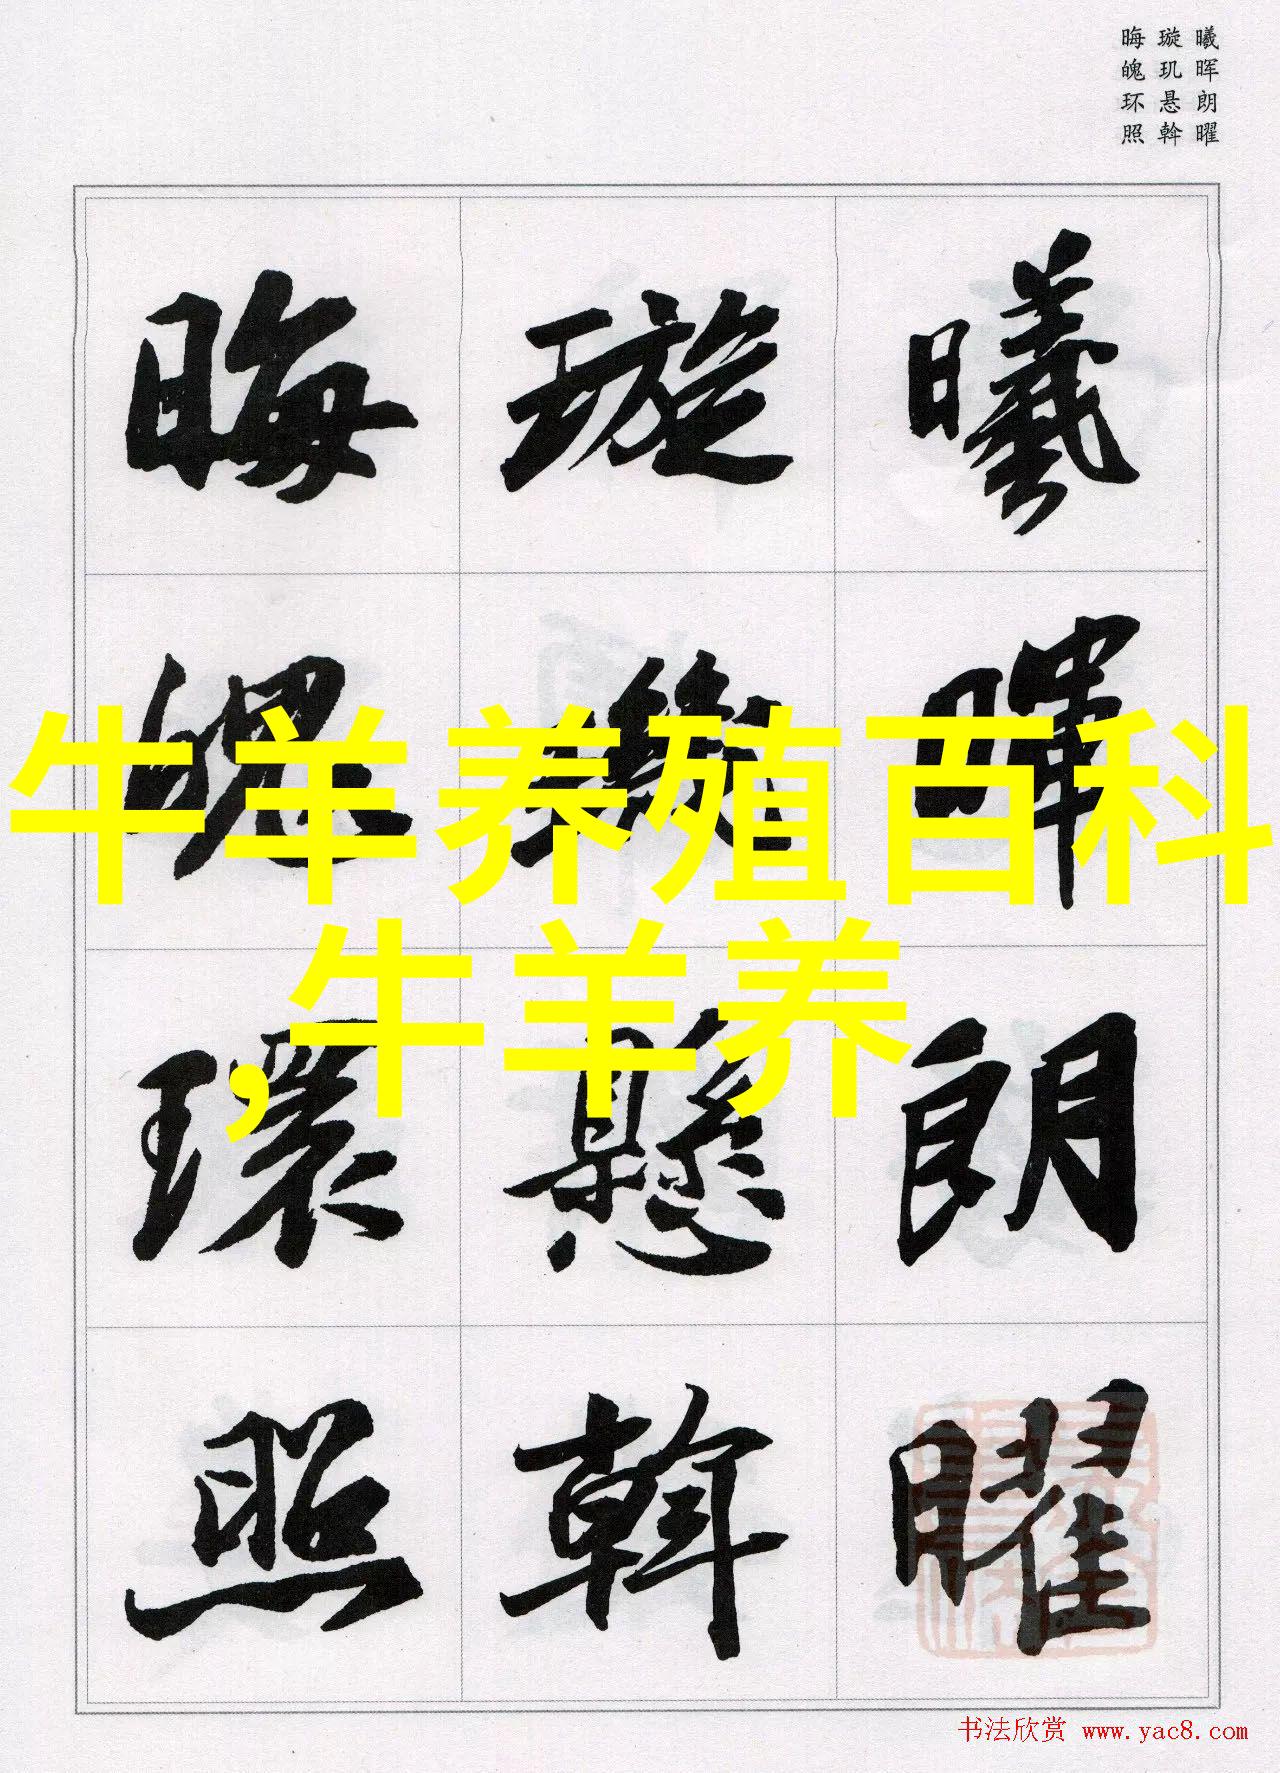 曦晖朗曜
璇玑悬斡
晦魄环照
曦暉朗曜
璇璣懸斡
晦魄環照
牛羊养殖百科
,牛羊养
书法欣赏 www.yac8.com